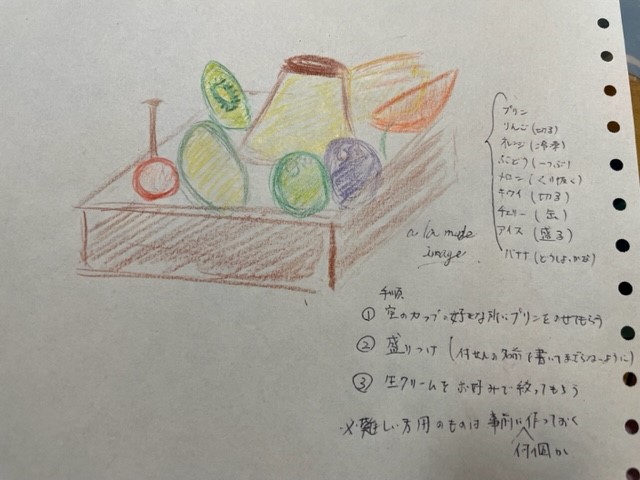 a la mode
image
プリン
りんご(切る)
オレンジ(冷凍)
ぶどう(一つぶ)
メロン(くり抜く)
キウイ(切る)
チェリー(缶)
アイス(盛る)
バナナ
手順
① 空のカップに好きな所にプリンをのせてもらう
② 盛りつけ(付せんに名前を書いてまざらないように)
③ 生クリームをお好みで絞ってもらう
※難しい方用のものは事前に作っておく
何個か